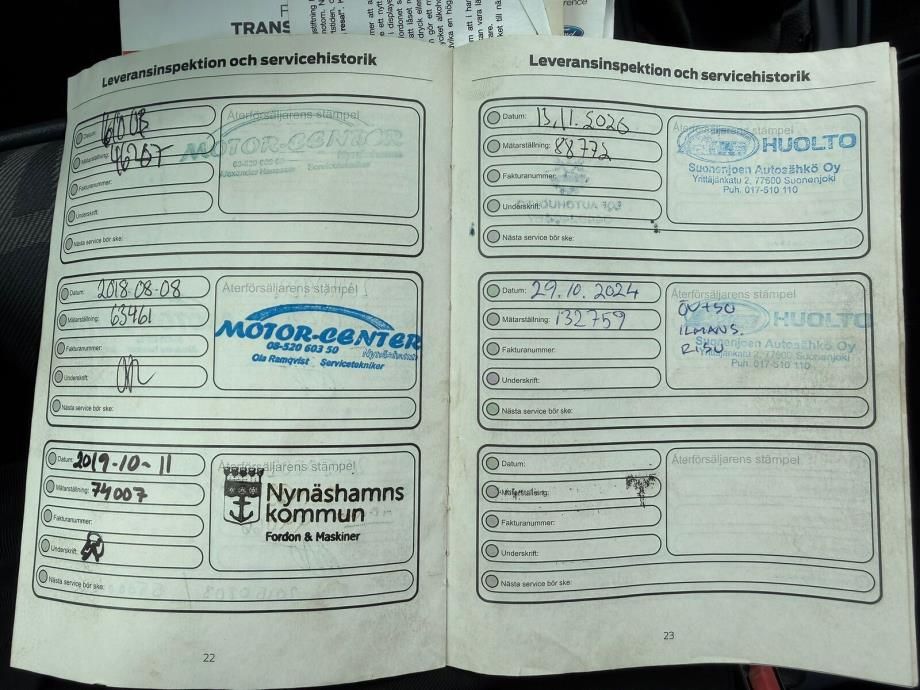 TRANS
Leveransinspektion och servicehistorik
Datum:
Mätarställning:
Fakturanummer:
Underskrift:
Nästa service bör ske:
Återförsäljarens stämpel
MOTOR-CENTER
08-520 603 50
Servicetekniker
Datum: 2018-08-08
Mätarställning: 63461
Fakturanummer:
Underskrift:
Nästa service bör ske:
Återförsäljarens stämpel
MOTOR-CENTER
08-520 603 50 Nynäshamn
Ola Ramqvist Servicetekniker
Datum: 2019-10-11
Mätarställning: 74007
Fakturanummer:
Underskrift:
Nästa service bör ske:
Återförsäljarens stämpel
Nynäshamns
kommun
Fordon & Maskiner
22
Leveransinspektion och servicehistorik
Datum: 13.11.2020
Mätarställning: 88772
Fakturanummer:
Underskrift:
Nästa service bör ske:
Återförsäljarens stämpel
HUOLTO
Suonenjoen Autosähkö Oy
Yrittäjänkatu 2, 77600 Suonenjoki
Puh. 017-510 110
Datum: 29.10.2024
Mätarställning: 132759
Fakturanummer:
Underskrift:
Nästa service bör ske:
Återförsäljarens stämpel
HUOLTO
ILMANS.
Suonenjoen Autosähkö Oy
Yrittäjänkatu 2, 77600 Suonenjoki
Puh. 017-510 110
Datum:
Mätarställning:
Fakturanummer:
Underskrift:
Nästa service bör ske:
Återförsäljarens stämpel
23